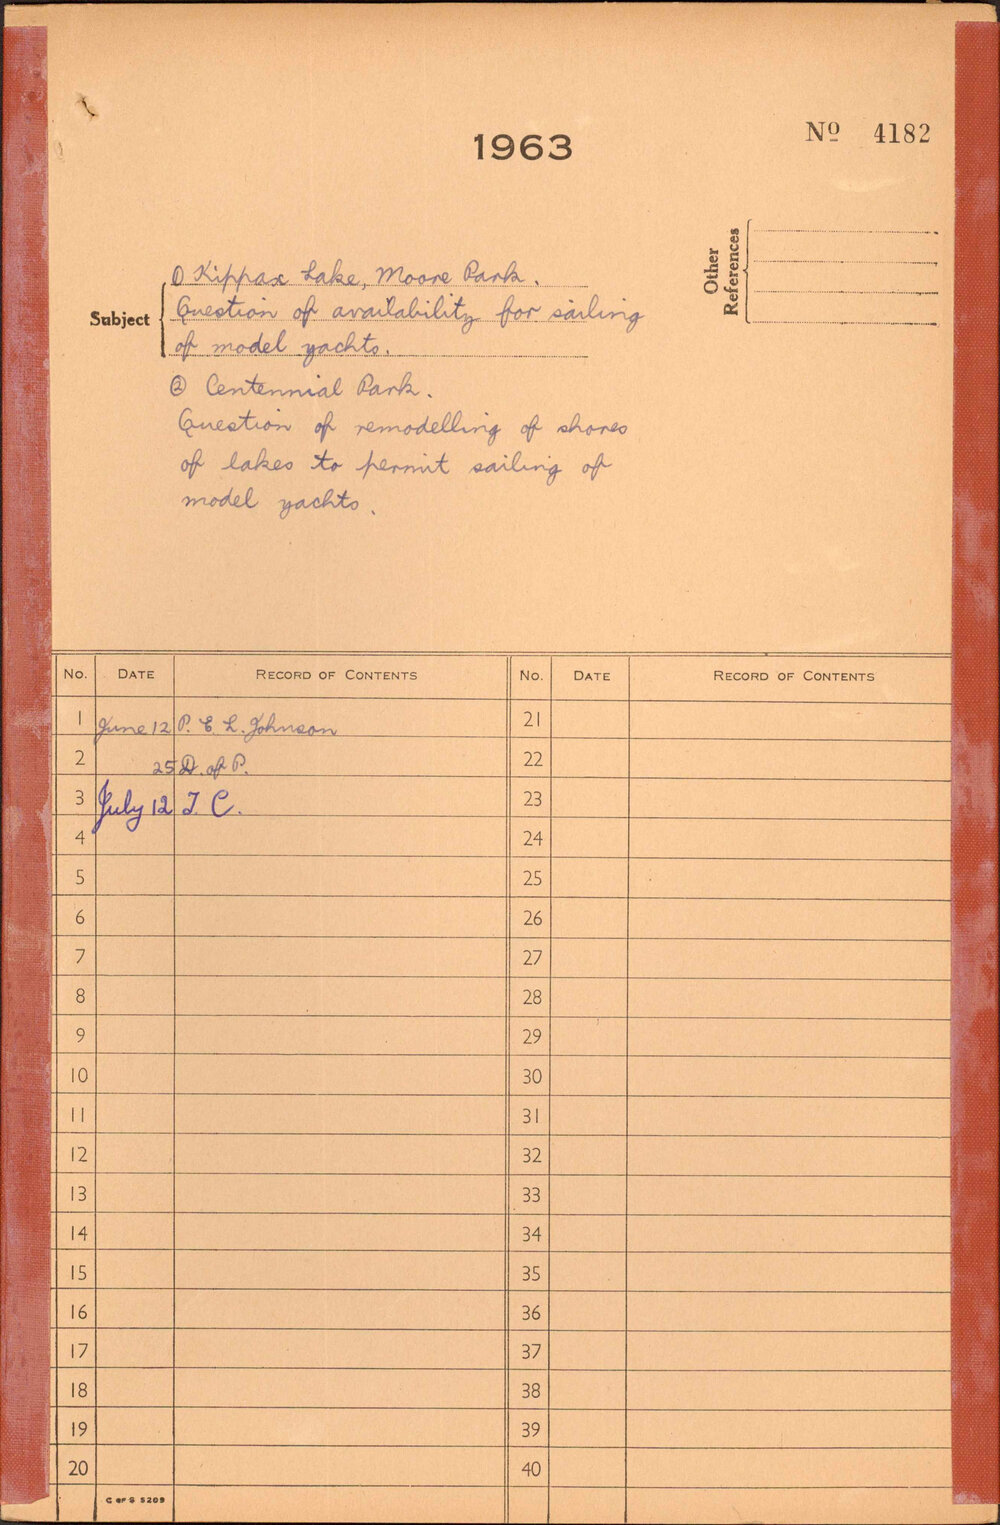 1963
Nº 4182
Other References
Subject
① Kippax Lake, Moore Park.
Question of availability for sailing
of model yachts.
② Centennial Park.
Question of remodelling of shores
of lakes to permit sailing of
model yachts.
No. DATE RECORD OF CONTENTS No. DATE RECORD OF CONTENTS
1 June 12 P. E. L. Johnson 21
2 25 D. of P. 22
3 July 12 T. C. 23
4 24
5 25
6 26
7 27
8 28
9 29
10 30
11 31
12 32
13 33
14 34
15 35
16 36
17 37
18 38
19 39
20 40
C OF S 5209